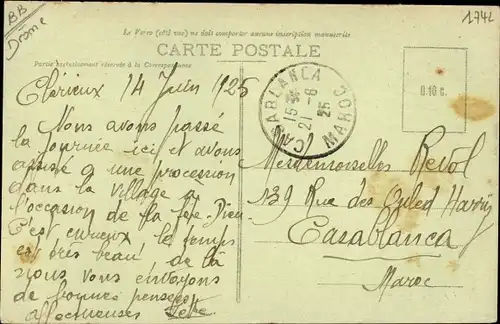 BB
Drôme
1742
Le Verso (côté vue) ne doit comporter aucune inscription manuscrite.
CARTE POSTALE
Partie exclusivement réservée à la Correspondance.
0.10 c.
CASABLANCA
15
21-6
25
MAROC
Clérieux 14 Juin 1925
Nous avons passé
la journée ici et avons
assisté a une procession
dans la village à
l'occasion de la fête-Dieu
C'est curieux le temps
est très beau, de là
nous vous envoyons
de bonnes pensées
affectueuses
Mesdemoiselles Revol
139 Rue des Ouled Harriz
Casablanca
Maroc